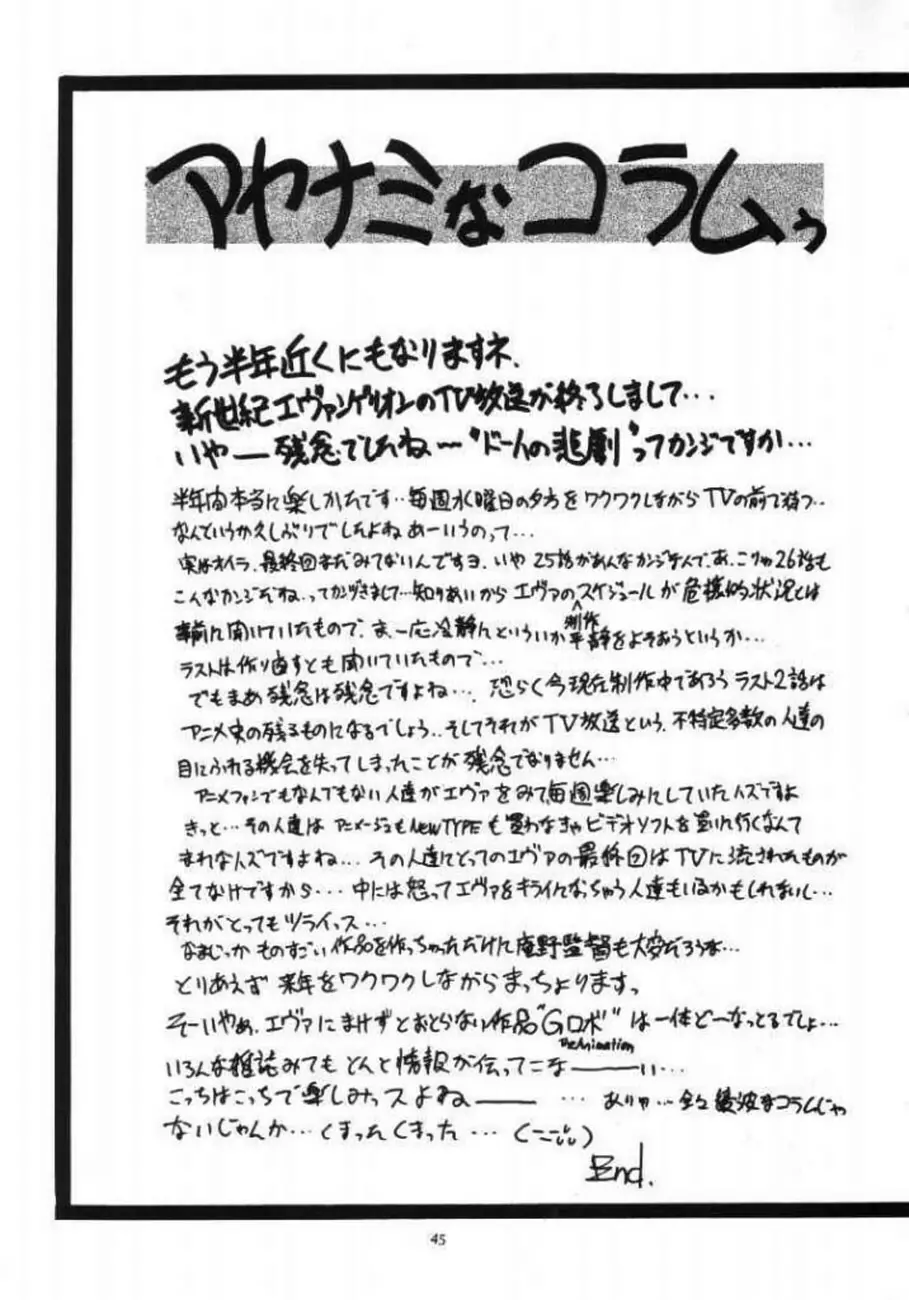 アヤナミなコラムぅ
もう半年近くにもなりますネ.
新世紀エヴァンゲリオンのTV放送が終了しまして…
いやー残念でしたね〜“ドームの悲劇”ってカンジですか…
半年間本当に楽しかたです‥毎週水曜日の夕方をワクワクしながらTVの前で待つ‥
なんというか久しぶりでしたよねあーいうのって…
実はオイラ、最終回まだみてないんですヨ.いや25話があんなカンジなんで、あ、こりゃ26話も
こんなカンジだね、ってカンづきまして…知りあいからエヴァの制作スケジュールが危機的状況とは
事前に聞いていたもので、ま、一応冷静にといいか平静をよそおうというか…
ラストは作り直すとも聞いていたもので…
でもまぁ残念は残念ですよね…恐らく今現在制作中であろうラスト2話は
アニメ史の残るものになるでしょう‥そしてそれがTV放送という、不特定多数の人達の
目にふれる機会を失ってしまったことが残念でなりません…
アニメファンでもなんでもない人達がエヴァをみて、毎週楽しみにしていたハズですよ
きっと…その人達はアニメージュもNEWTYPEも買わなきゃビデオソフトを買いに行くなんて
まれなハズですよね…その人達にとってのエヴァの最終回はTVに流されたものが
全てなけですから…中には怒ってエヴァをキライになっちゃう人達もいるかもしれないし…
それがとってもツライっス…
なまじっかものすごい作品を作っちゃっただけに庵野監督も大変だろうな…
とりあえず来年をワクワクしながらまっちょります。
そーいやぁ、エヴァにまけずとおとらない作品“Gロボ”は一体どーなっとるでしょ…
The Animation
いろんな雑誌みてもとんと情報が伝ってこなーーい…
こっちはこっちで楽しみっスよねーー …ありゃ…全々綾波なコラムじゃ
ないじゃんか…くまったくまった…(ーー;;)
End.
45